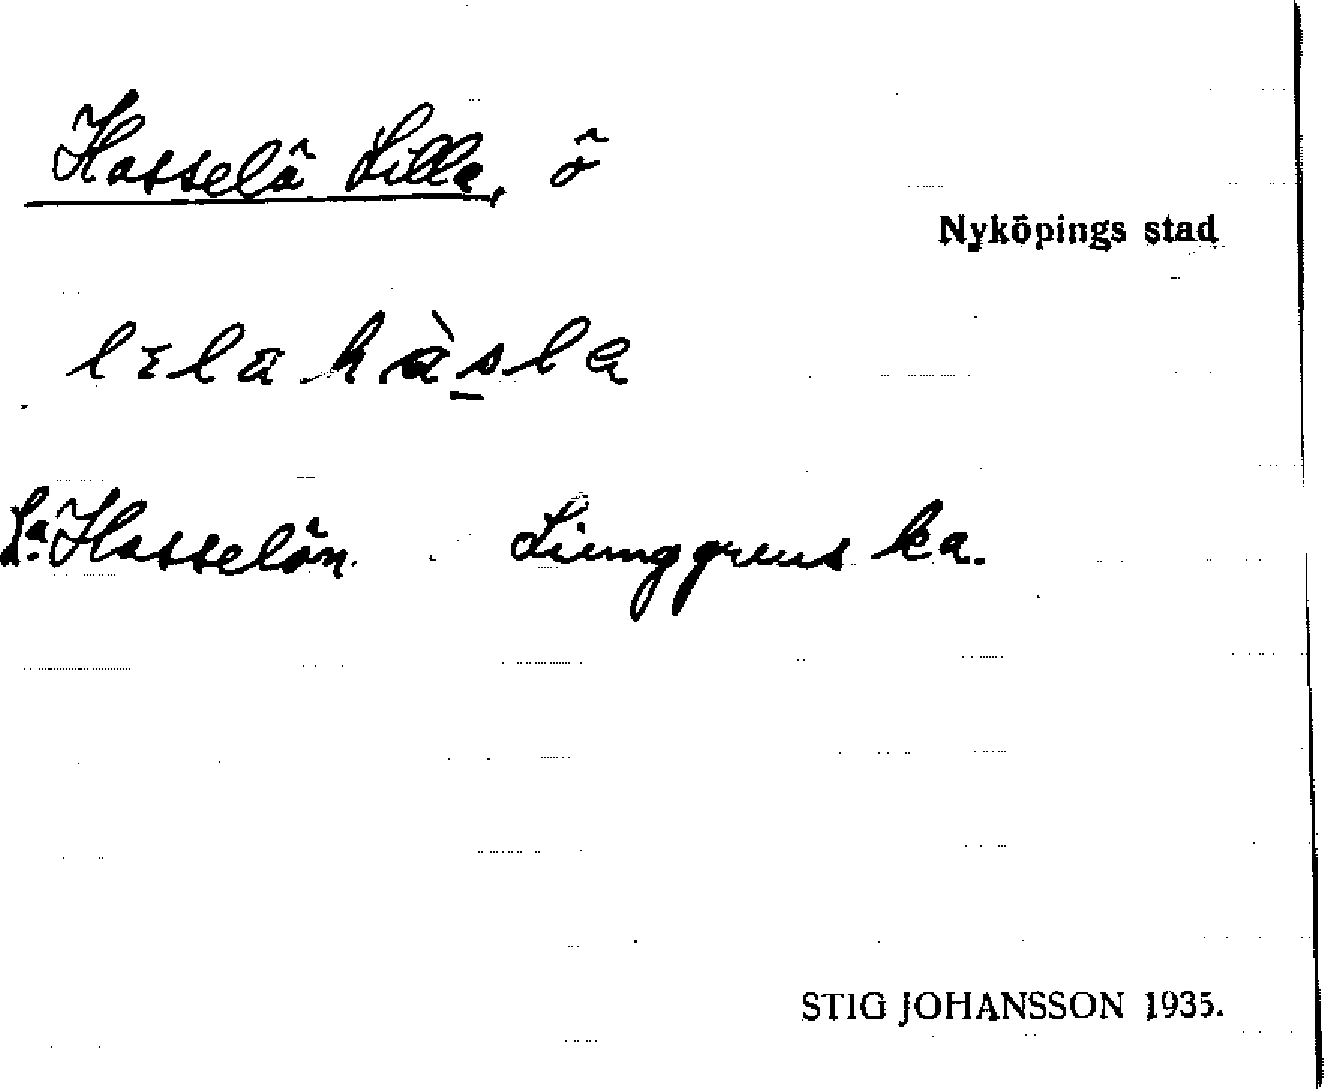 Hasselö Lilla, ö
Nyköpings stad
lɪla hàsla
La. Hasselön. Ljunggrens ka.
STIG JOHANSSON 1935.